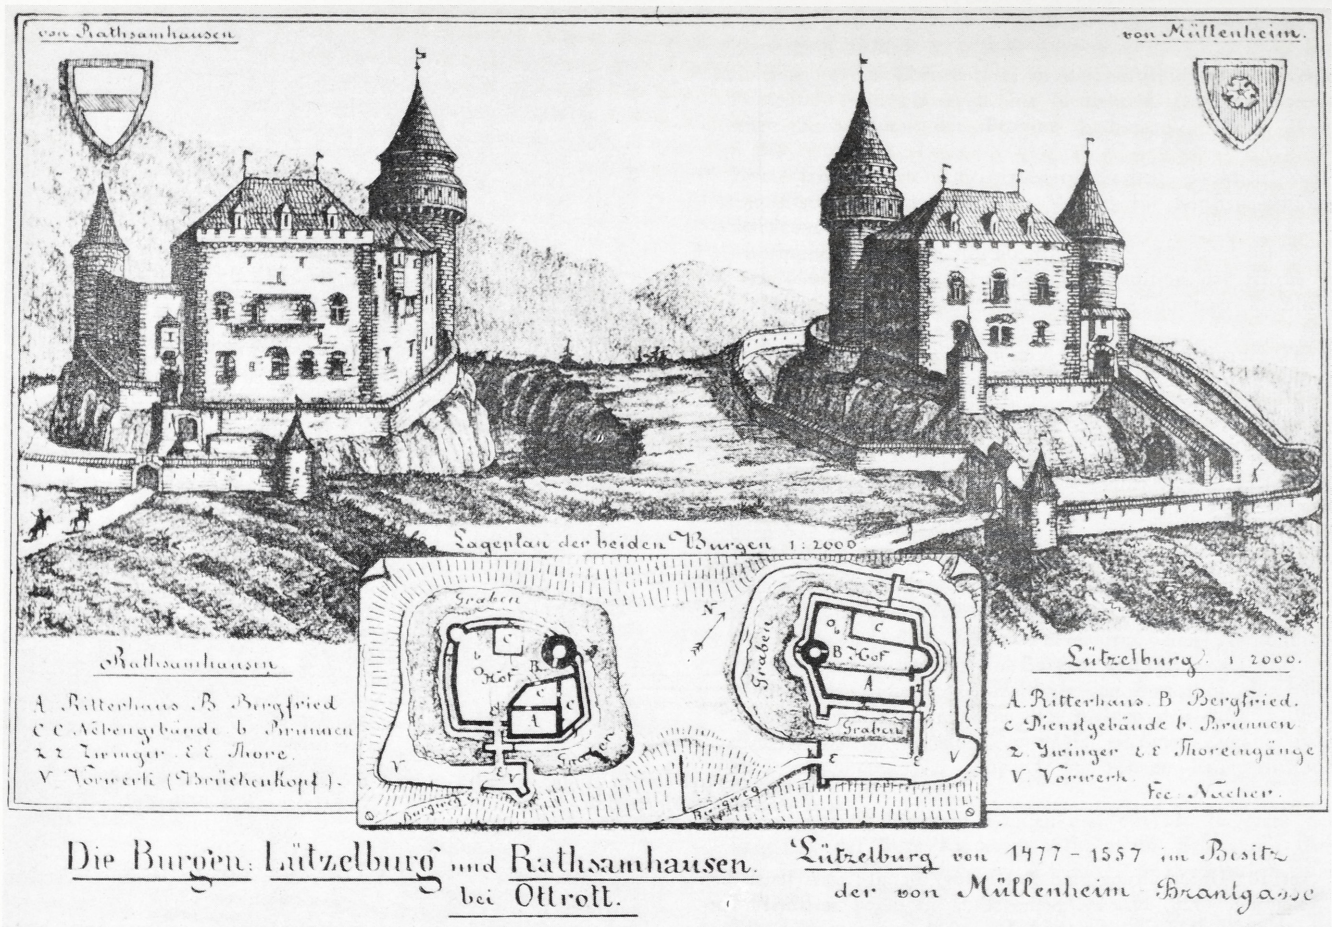 von Rathsamhausen
von Müllenheim.
Lageplan der beiden Burgen 1:2000
N
Graben
C
b
Hof
B
C
A
C
z
Graben
E
V
V
Burgweg E
Graben
b
C
B Hof
A
z
Graben
E
E
V
Burgweg
Rathsamhausen
A Ritterhaus B Bergfried
C C Nebengebäude b Brunnen
z z Zwinger E E Thore.
V Vorwerk (Brückenkopf).
Lützelburg. 1:2000.
A. Ritterhaus. B Bergfried.
C Dienstgebäude b. Brunnen
z. Zwinger E E Thoreingänge
V. Vorwerk.
Fec. Nacher.
Die Burgen: Lützelburg und Rathsamhausen.
bei Ottrott.
Lützelburg von 1477-1557 im Besitz
der von Müllenheim-Brantgasse